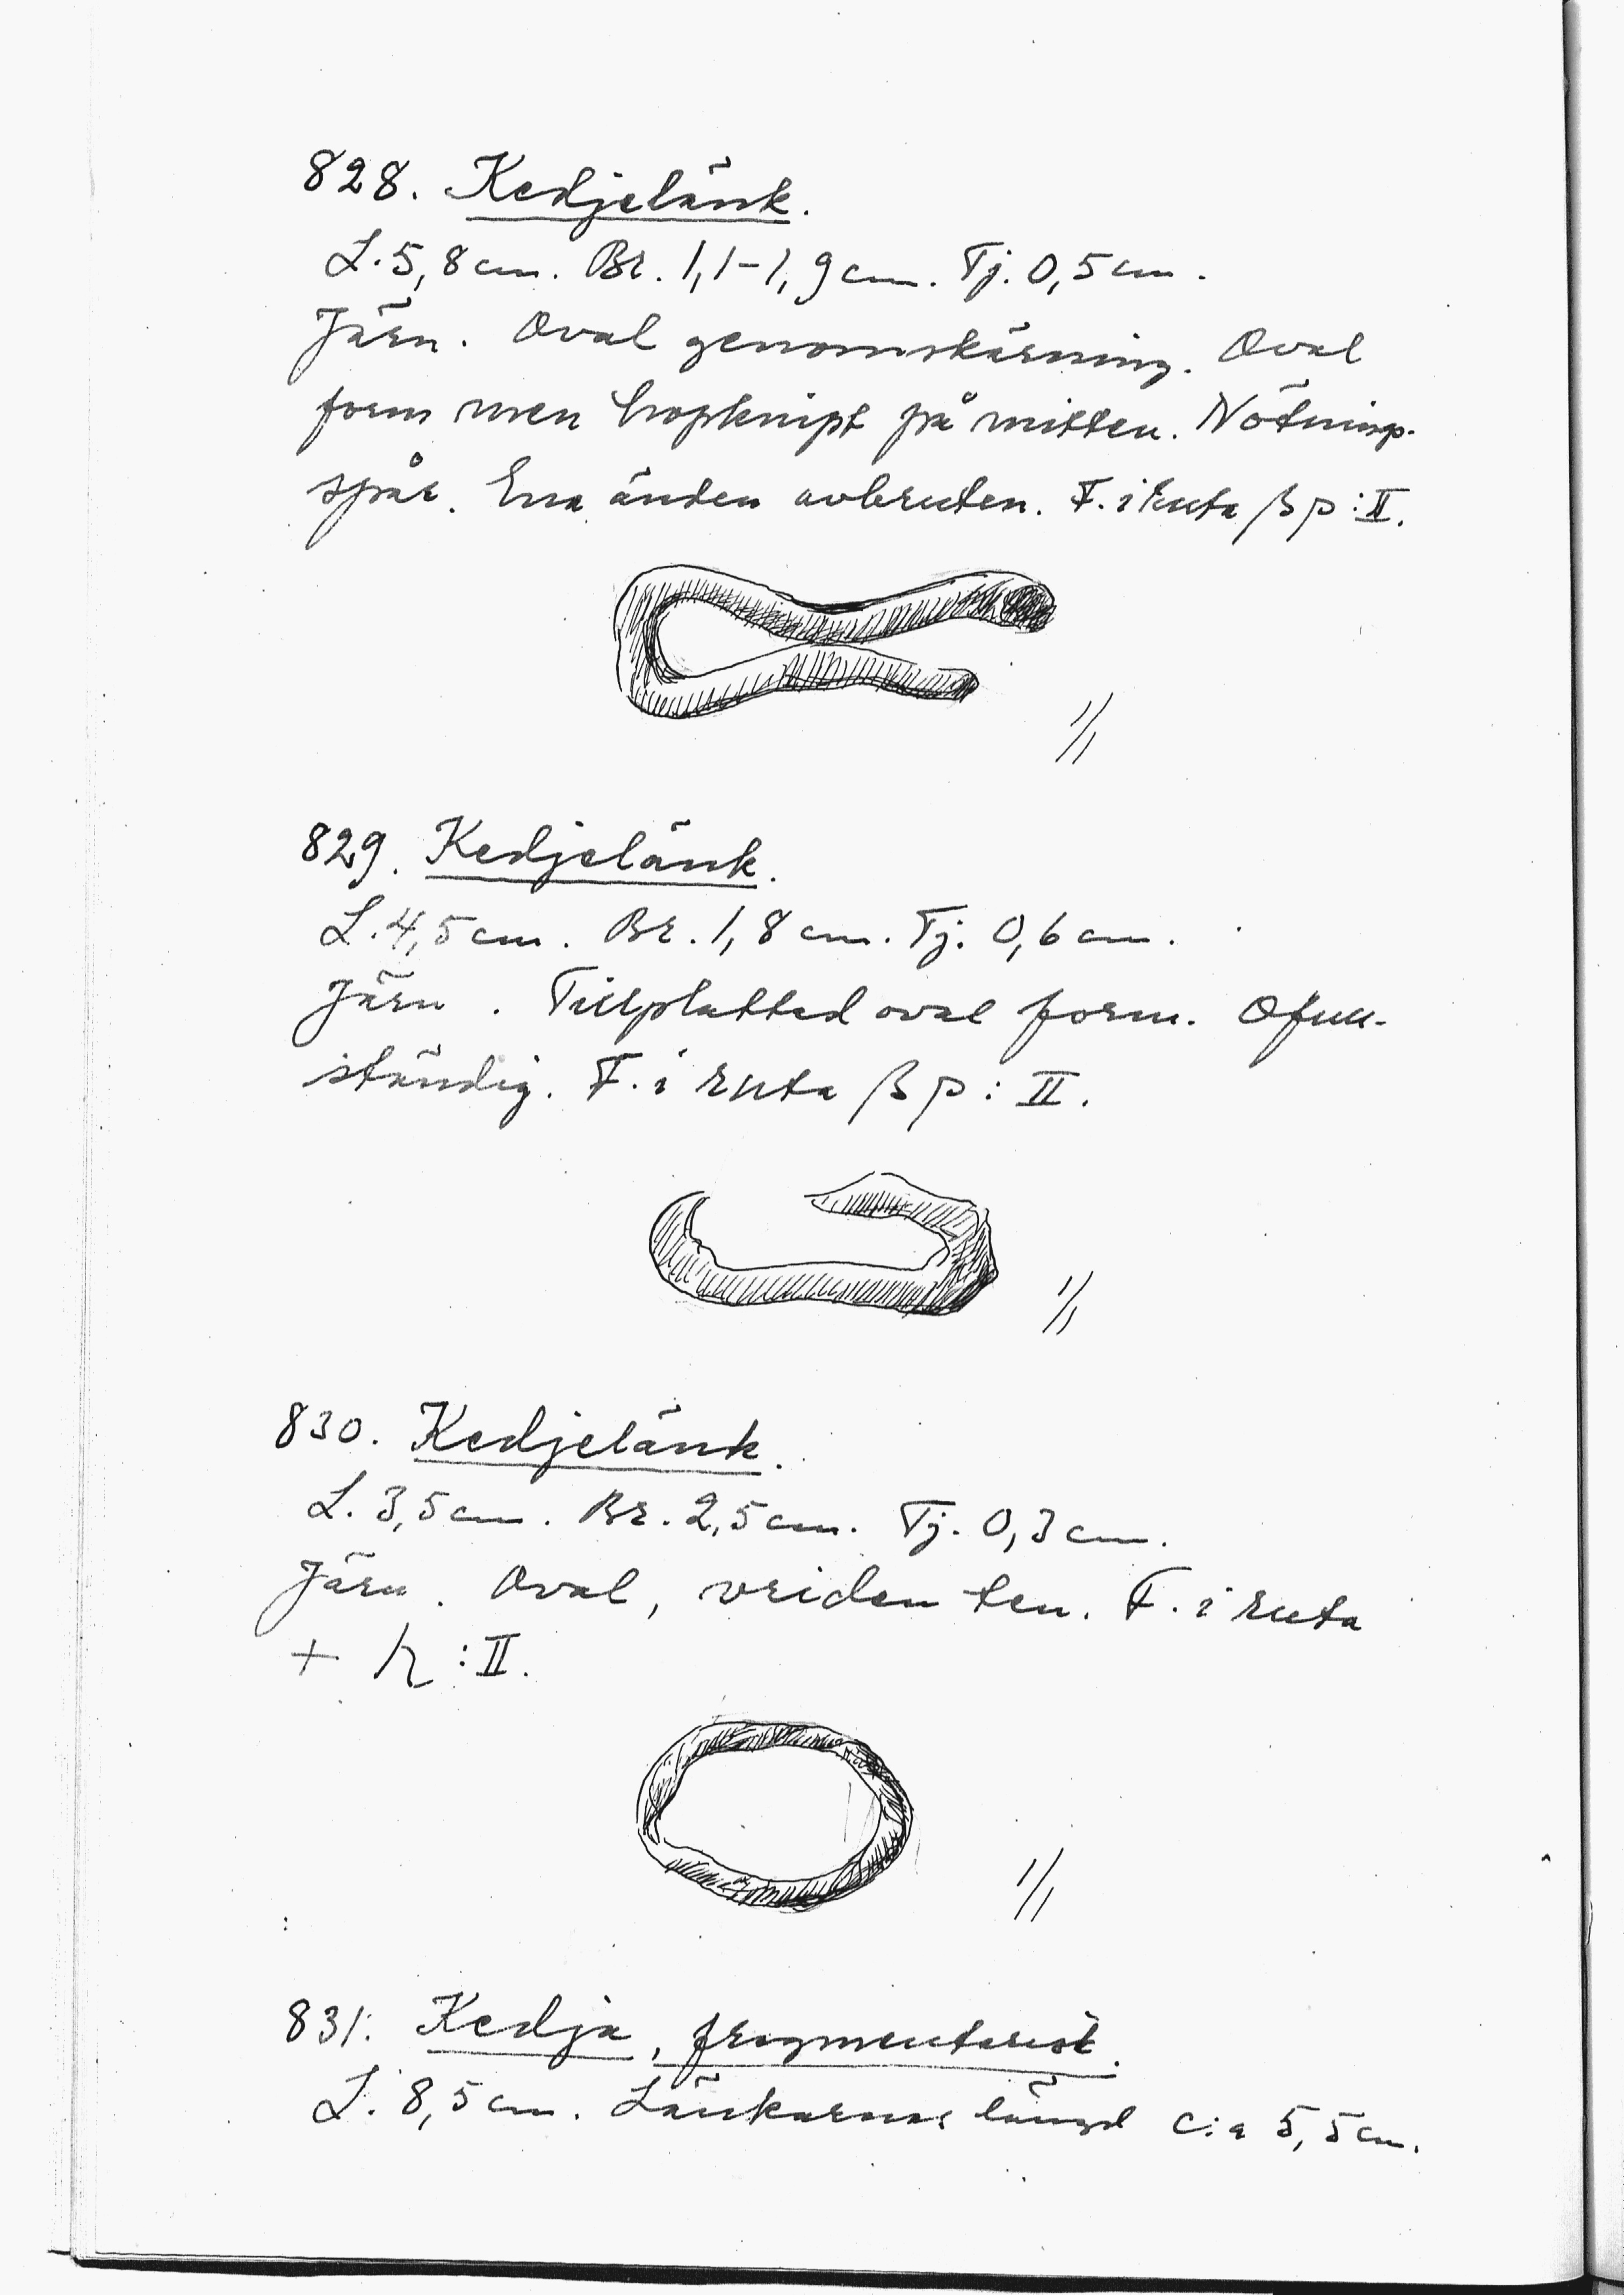 828. Kedjelänk.
L. 5,8 cm. Br. 1,1-1,9 cm. Tj. 0,5 cm.
Järn. Oval genomskärning. Oval
form men hopknipt på mitten. Nötnings-
spår. Ena änden avbruten. F. i ruta β p : II.
1/1
829. Kedjelänk.
L. 4,5 cm. Br. 1,8 cm. Tj. 0,6 cm.
Järn. Tillplattad oval form. Ofull-
ständig. F. i ruta β p : II.
1/1
830. Kedjelänk.
L. 3,5 cm. Br. 2,5 cm. Tj. 0,3 cm.
Järn. Oval, vriden ten. F. i ruta
+ h : II.
1/1
831. Kedja, fragmentarisk.
L. 8,5 cm. Länkarnas längd c:a 5,5 cm.